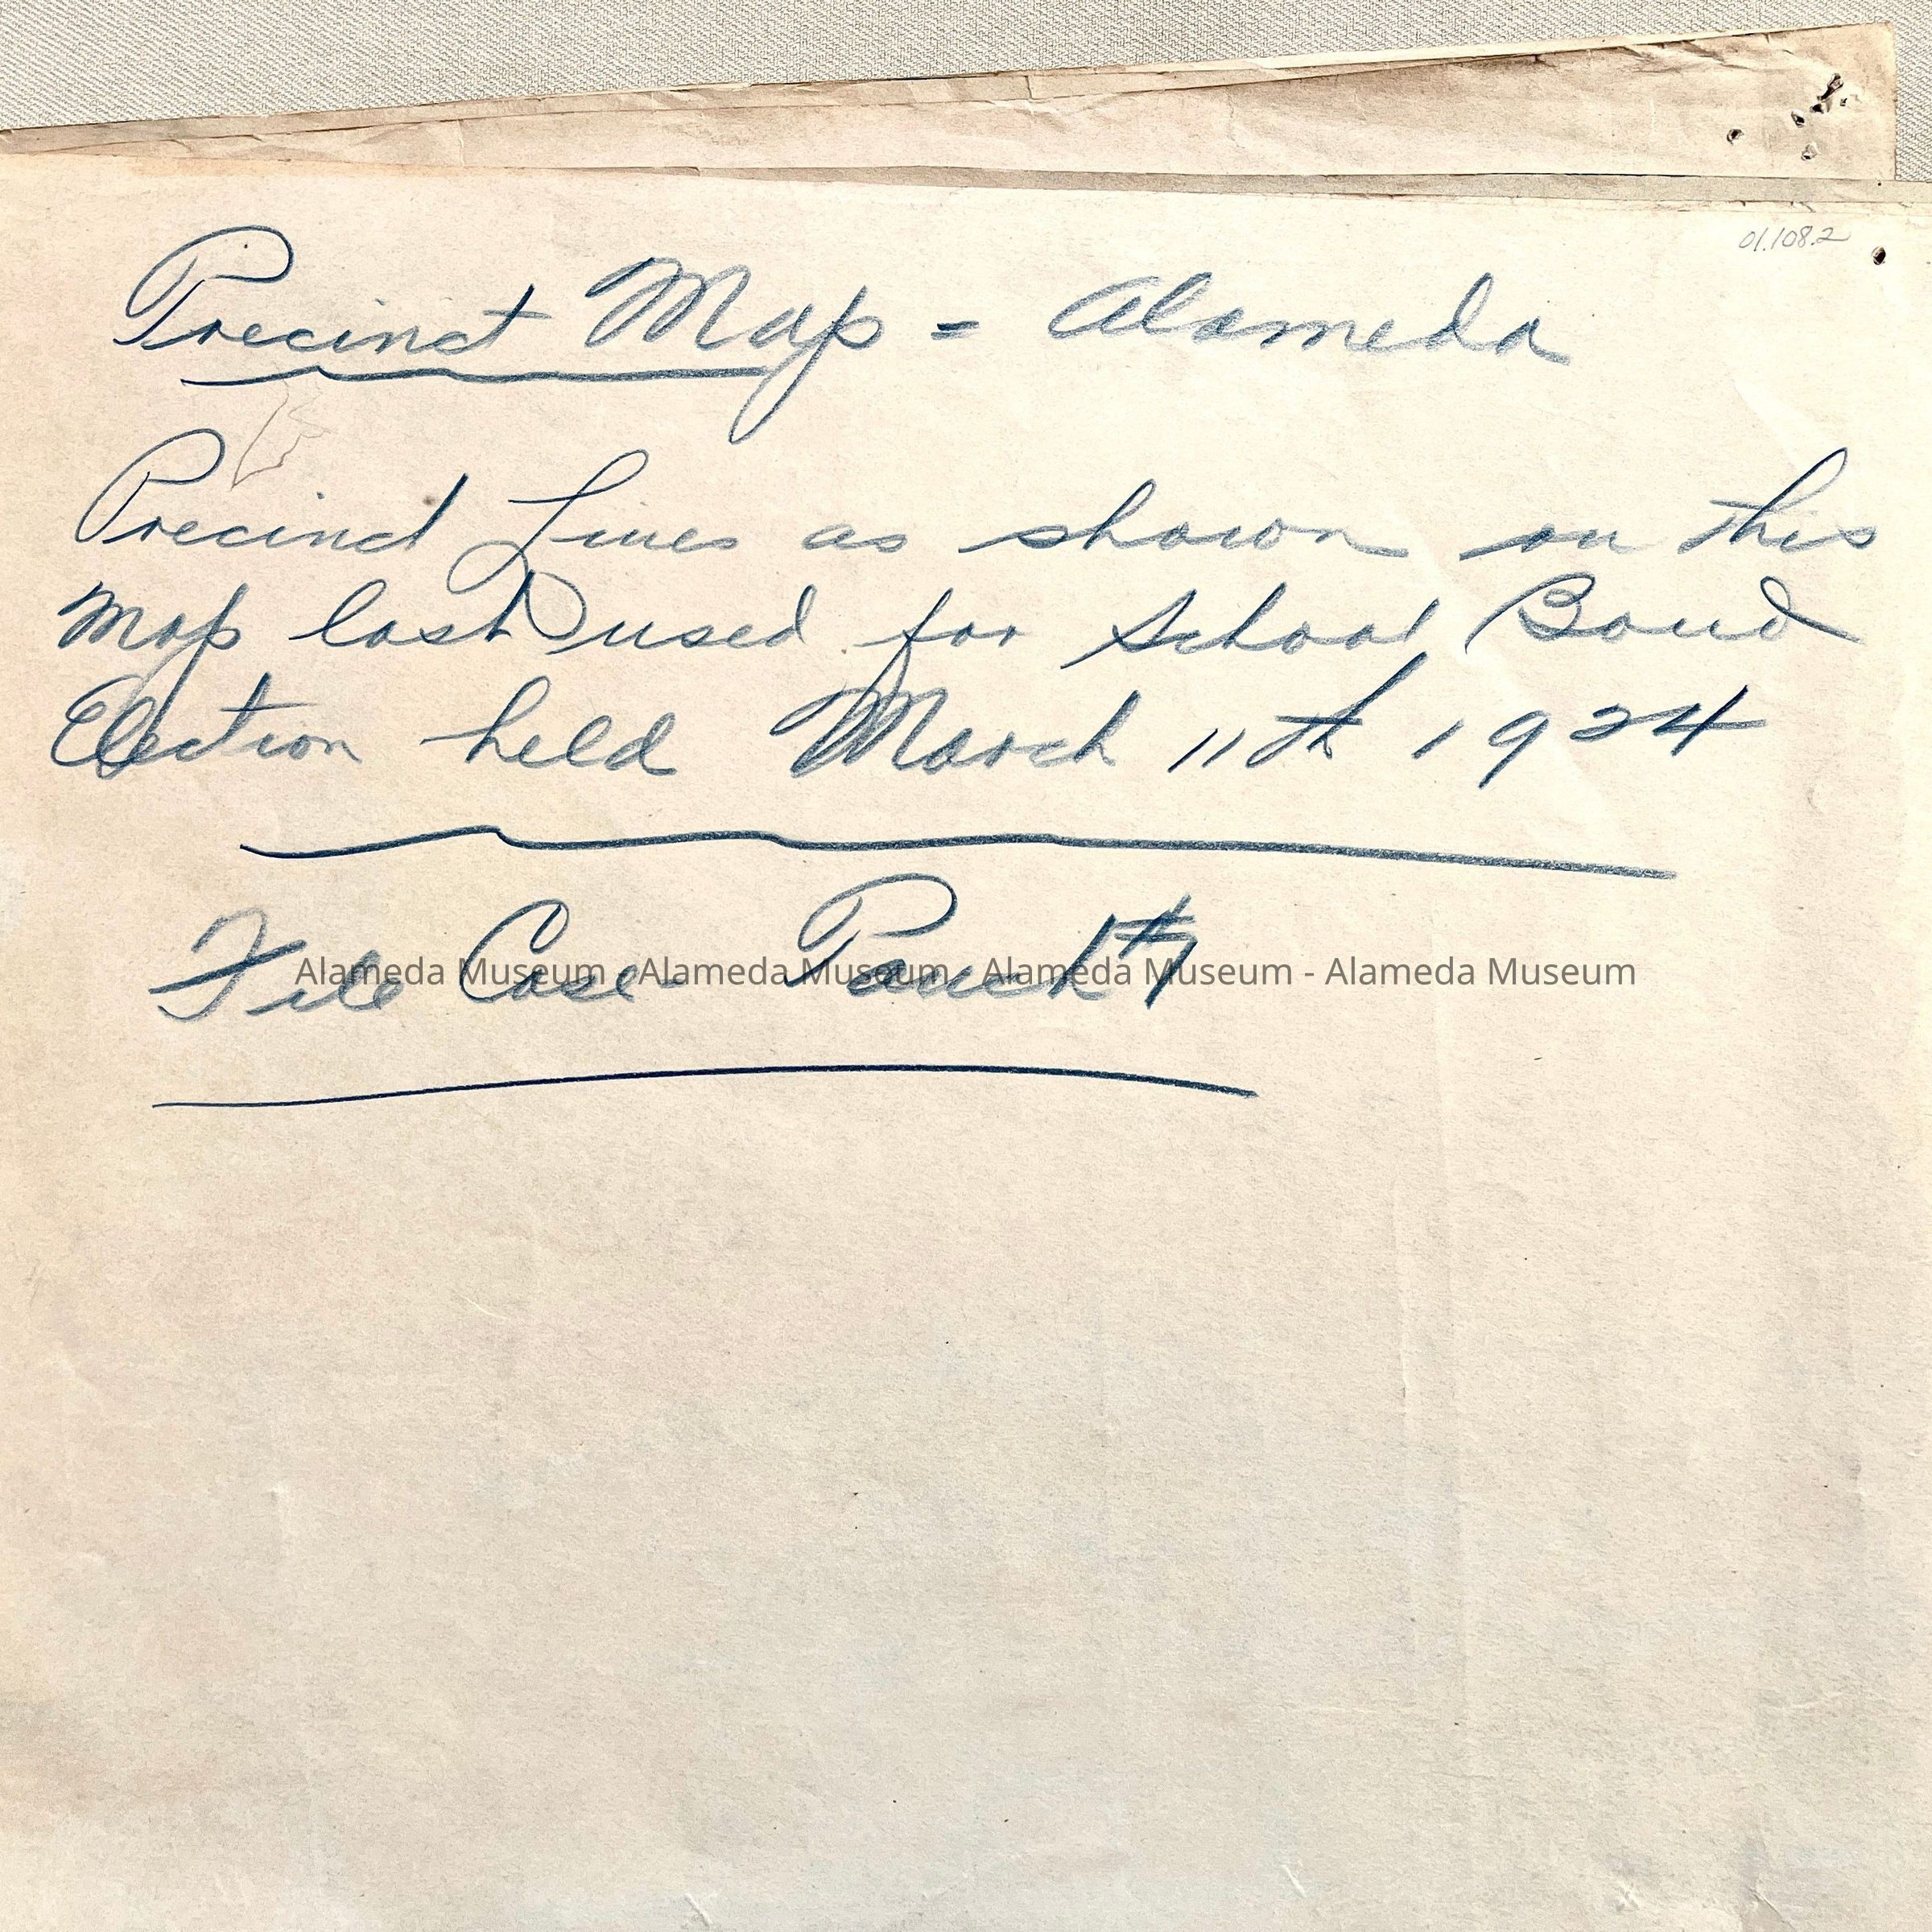 01.108.2
Precinct Map = Alameda
Precinct Lines as shown on this
Map last used for School Bond
Election held March 11th 1924
File Case - #1
Alameda Museum - Alameda Museum - Alameda Museum - Alameda Museum